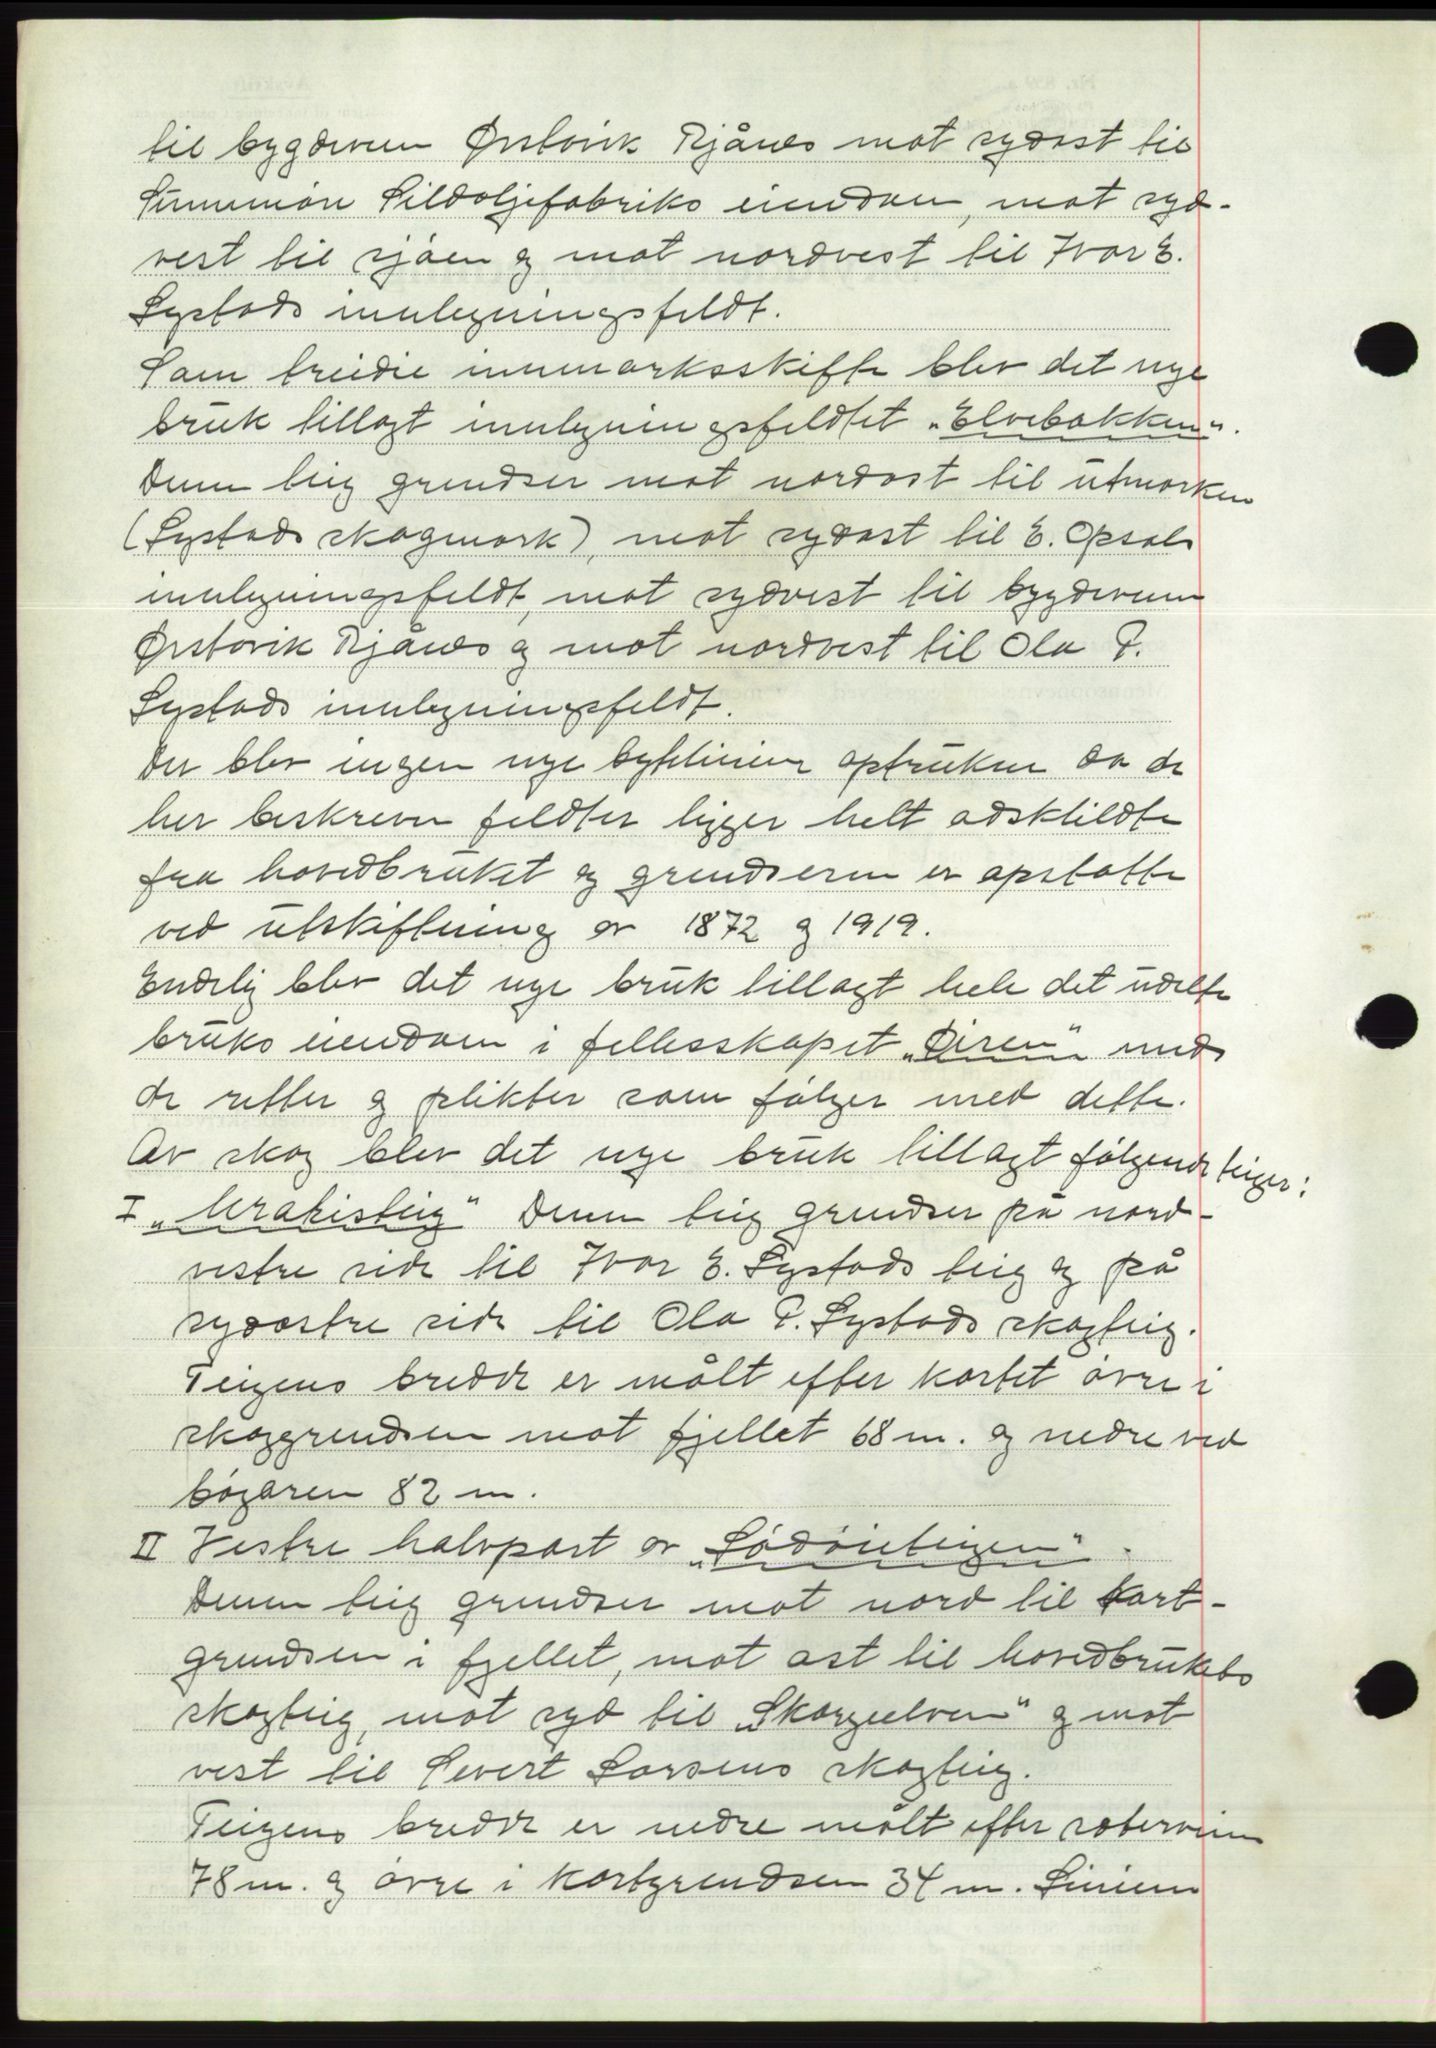 til bygdeveien Ørstavik Rjånes mot sydøst til
Sunnmöre Sildoljefabriks eiendom, mot syd-
vest til sjöen og mot nordvest til Ivar E.
Systads innlegningsfeldt.
Som tredie innmarksskifte blev det nye
bruk tillagt innlegningsfeldtet "Elvebakken".
Denne teig grendser mot nordost til utmarken
(Systads skogmark), mot sydost til E. Opsals
innlegningsfeldt, mot sydvest til bygdeveien
Ørstavik Rjånes og mot nordvest til Ola P.
Systads innlegningsfeldt.
Der blev ingen nye bytelinier optrukne da de
her beskrevne feldter ligger helt adskildte
fra hovedbruket og grendserne er opsatte
ved utskiftning av 1872 og 1919.
Endelig blev det nye bruk tillagt hele det udelte
bruks eiendom i fellesskapet "Øiren" med
de retter og plikter som følger med dette.
Av skog blev det nye bruk tillagt følgende teiger:
I "Urakisteig" Denne teig grendser på nord-
vestre side til Ivar E. Systads teig og på
sydostre side til Ola P. Systads skogteig.
Teigens bredde er målt efter kartet övre i
skoggrendsen mot fjellet 68 m. og nedre ved
bögaren 82 m.
II Vestre halvpart av "Södöieteigen".
Denne teig grendser mot nord til kart-
grendsen i fjellet, mot ost til hovedbrukets
skogteig, mot syd til "Skorgeelven" og mot
vest til Severt Larsens skogteig.
Teigens bredde er nedre målt efter sæterveien
78 m. og övre i kartgrendsen 34 m. Linien